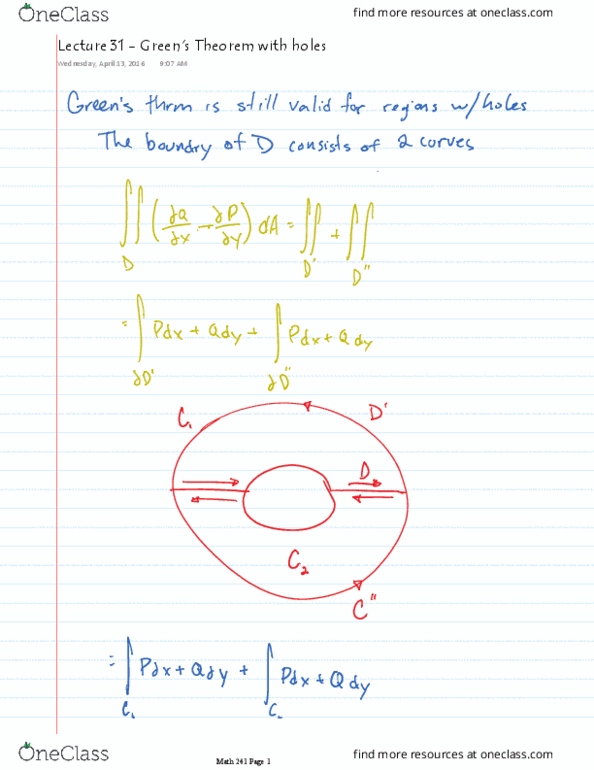 OneClass
find more resources at oneclass.com
Lecture 31 - Green's Theorem with holes
Wednesday, April 13, 2016 9:07 AM
Green's thrm is still valid for regions w/holes
The boundry of D consists of 2 curves
∬_D (∂Q/∂x - ∂P/∂y) dA = ∬_D' + ∬_D"
= ∫_∂D' Pdx + Qdy + ∫_∂D" Pdx + Qdy
C₁
D'
D
C₂
C"
= ∫_C₁ Pdx + Qdy + ∫_C Pdx + Qdy
OneClass
find more resources at oneclass.com
Math 241 Page 1